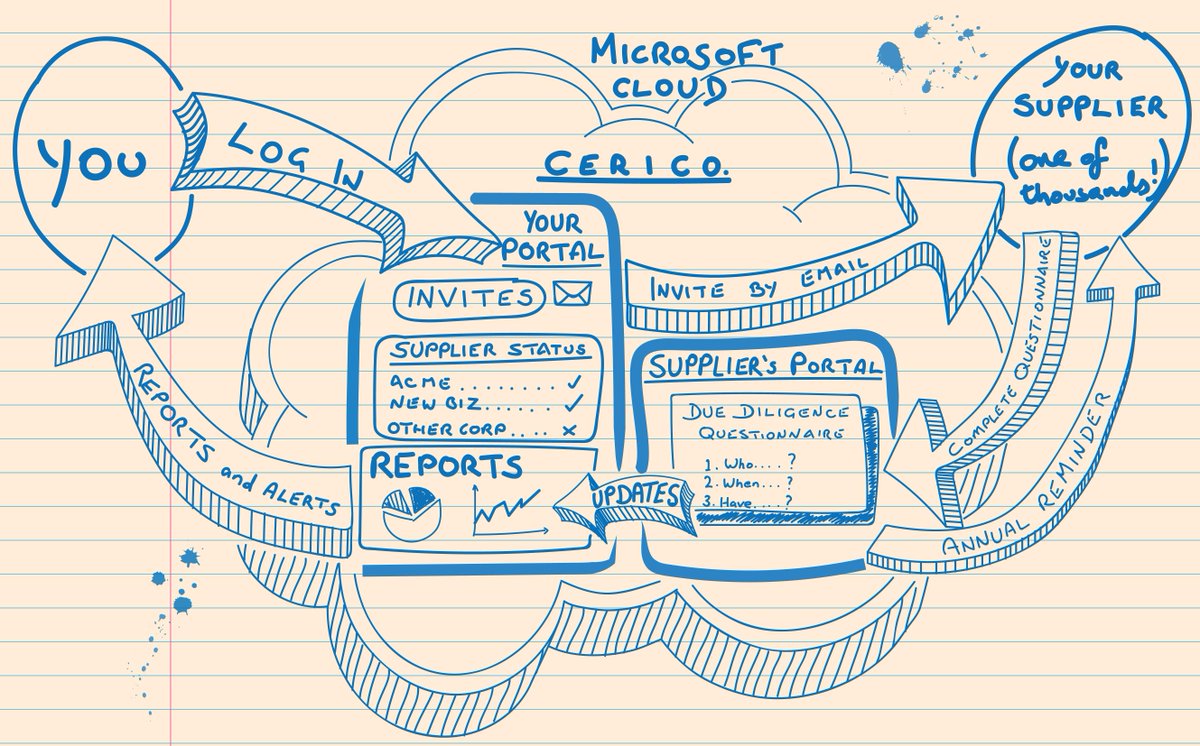 YOU
LOG IN
MICROSOFT
CLOUD
CERICO.
YOUR
SUPPLIER
(one of
thousands!)
YOUR
PORTAL
INVITES
SUPPLIER STATUS
ACME ........ ✓
NEW BIZ...... ✓
OTHER CORP .... x
REPORTS
INVITE BY EMAIL
SUPPLIER'S PORTAL
DUE DILIGENCE
QUESTIONNAIRE
1. Who....?
2. When...?
3. Have....?
UPDATES
COMPLETE QUESTIONNAIRE
ANNUAL REMINDER
REPORTS and ALERTS